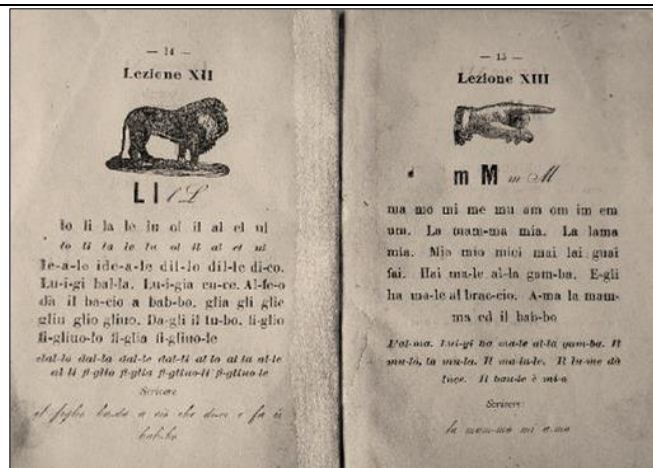 — 14 —
Lezione XII
L l l L
lo li la le lu ol il al el ul
lo li la le lu ol il al el ul
le-a-le ide-a-le dil-lo dil-le di-co.
Lu-i-gi bal-la. Lu-i-gia cu-ce. Al-fe-o
dà il ba-cio a bab-bo. glia gli glie
gliu glio gliuo. Da-gli il tu-bo. fi-glio
fi-gliuo-lo fi-glia fi-gliuo-le
dal-lo dal-la dal-le dal-li al-lo al-la al-le
al li fi-glio fi-glia fi-gliuo-li fi-gliuo-le
Scrivere
il figlio ba-da a ciò che dice e fa il
bab-bo
— 15 —
Lezione XIII
m M m M
ma mo mi me mu am om im em
um. La mam-ma mia. La lama
mia. Mia mio miei mai lai guai
fai. Hai ma-le al-la gam-ba. E-gli
ha ma-le al brac-cio. A-ma la mam-
ma ed il bab-bo
Pal-ma. Lui-gi ha ma-le al-la gam-ba. Il
mu-lo, la mu-la. Il ma-ia-le. Il lu-me dà
luce. Il bau-le è mi-o
Scrivere:
la mam-ma mi a-ma